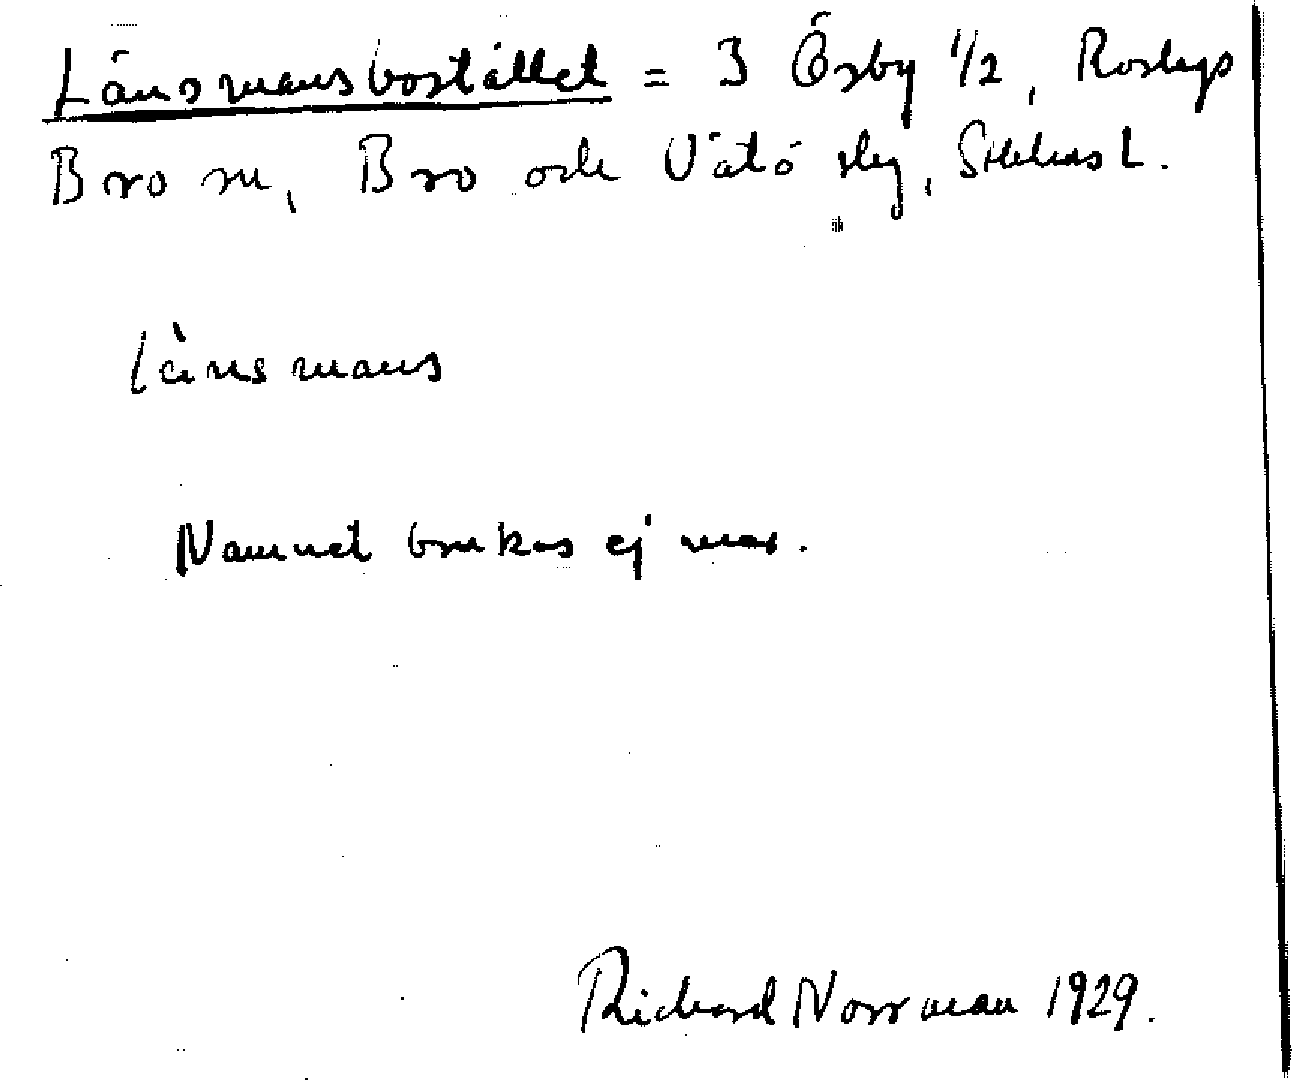 Länsmansbostället = 3 Ösby 1/2, Roslags
Bro sn, Bro och Vätö skg, Sthlms L.
länsmans
Namnet brukas ej mer.
Richard Norrman 1929.